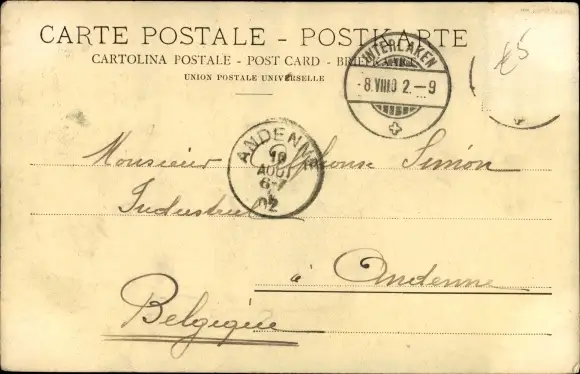 CARTE POSTALE – POSTKARTE
CARTOLINA POSTALE - POST CARD -
UNION POSTALE UNIVERSELLE
INTERLAKEN
-8.VIII.02.-9
ANDENNE
10
AOUT
6-7
02
Monsieur Alphonse Simon
Industriel
à Andenne
Belgique